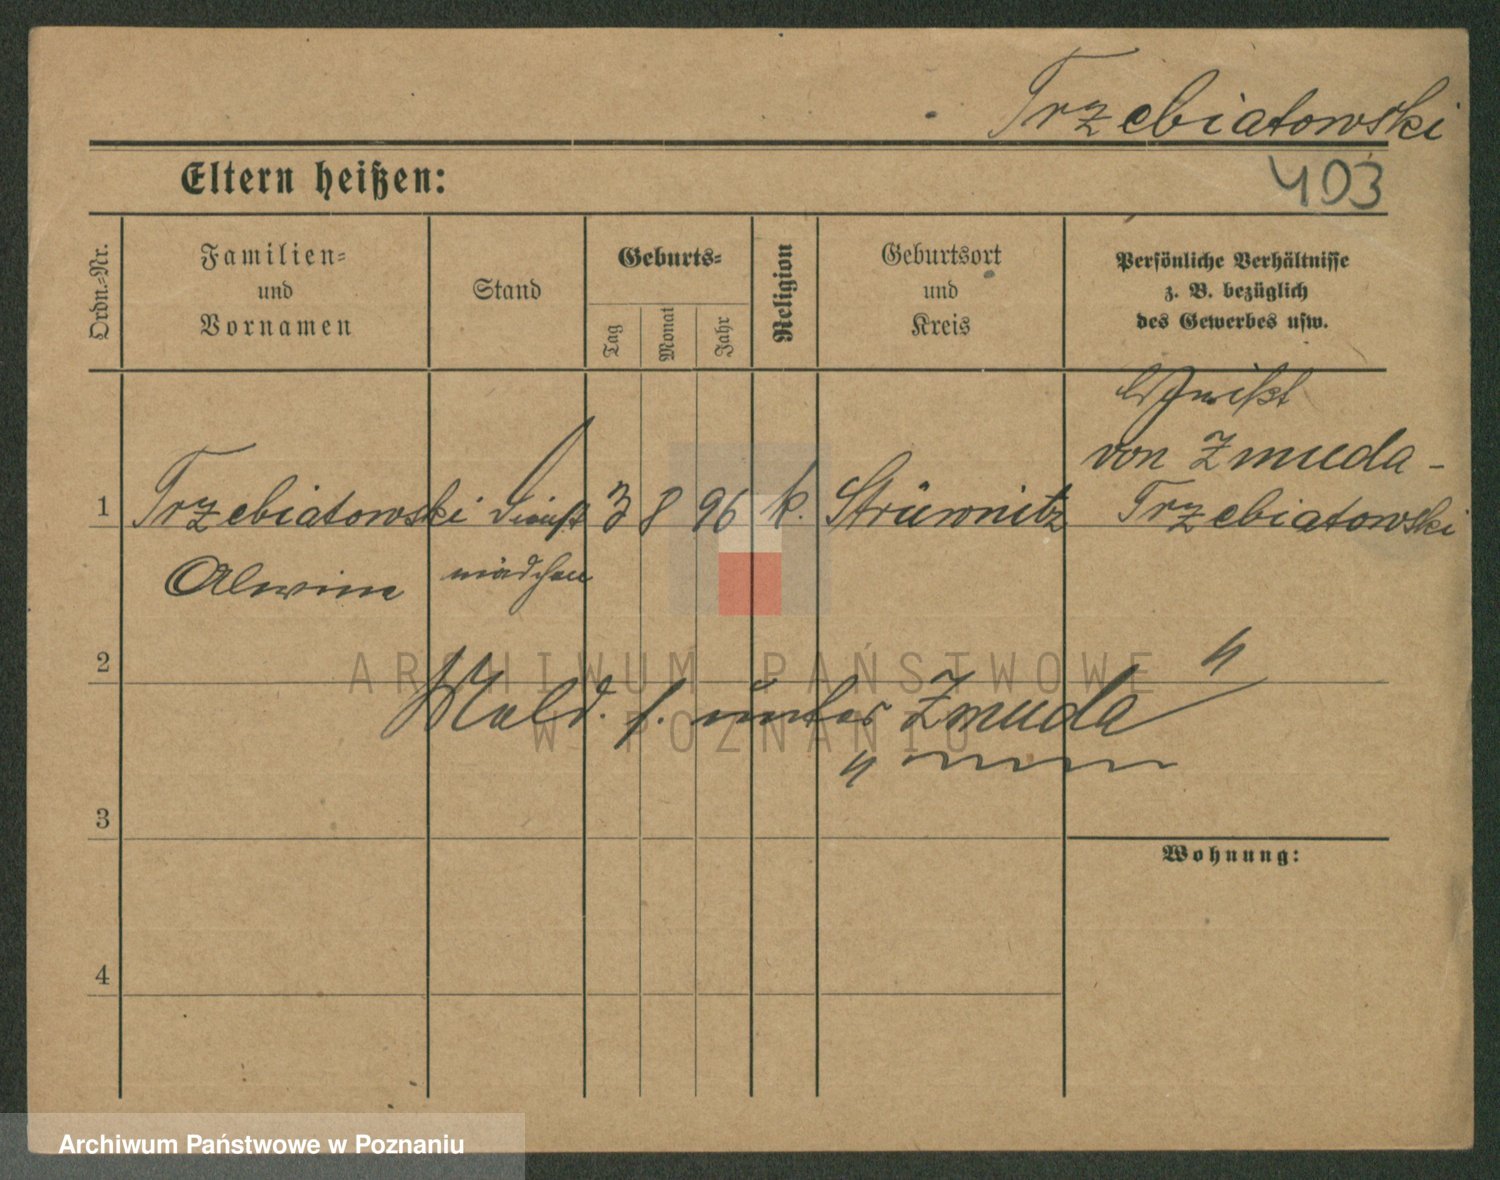 Trzebiatowski
Eltern heißen:
403
Ordn.-Nr.
Familien-
und
Vornamen
Stand
Geburts-
Tag
Monat
Jahr
Religion
Geburtsort
und
Kreis
Persönliche Verhältnisse
z. B. bezüglich
des Gewerbes usw.
von Zmuda-
Trzebiatowski
1 Trzebiatowski Dienst 3 8 96 k. Strüwnitz
Alwine mädchen
2
Meld. s. unter "Zmuda"
3
Wohnung:
4
ARCHIWUM PAŃSTWOWE
W POZNANIU
Archiwum Państwowe w Poznaniu